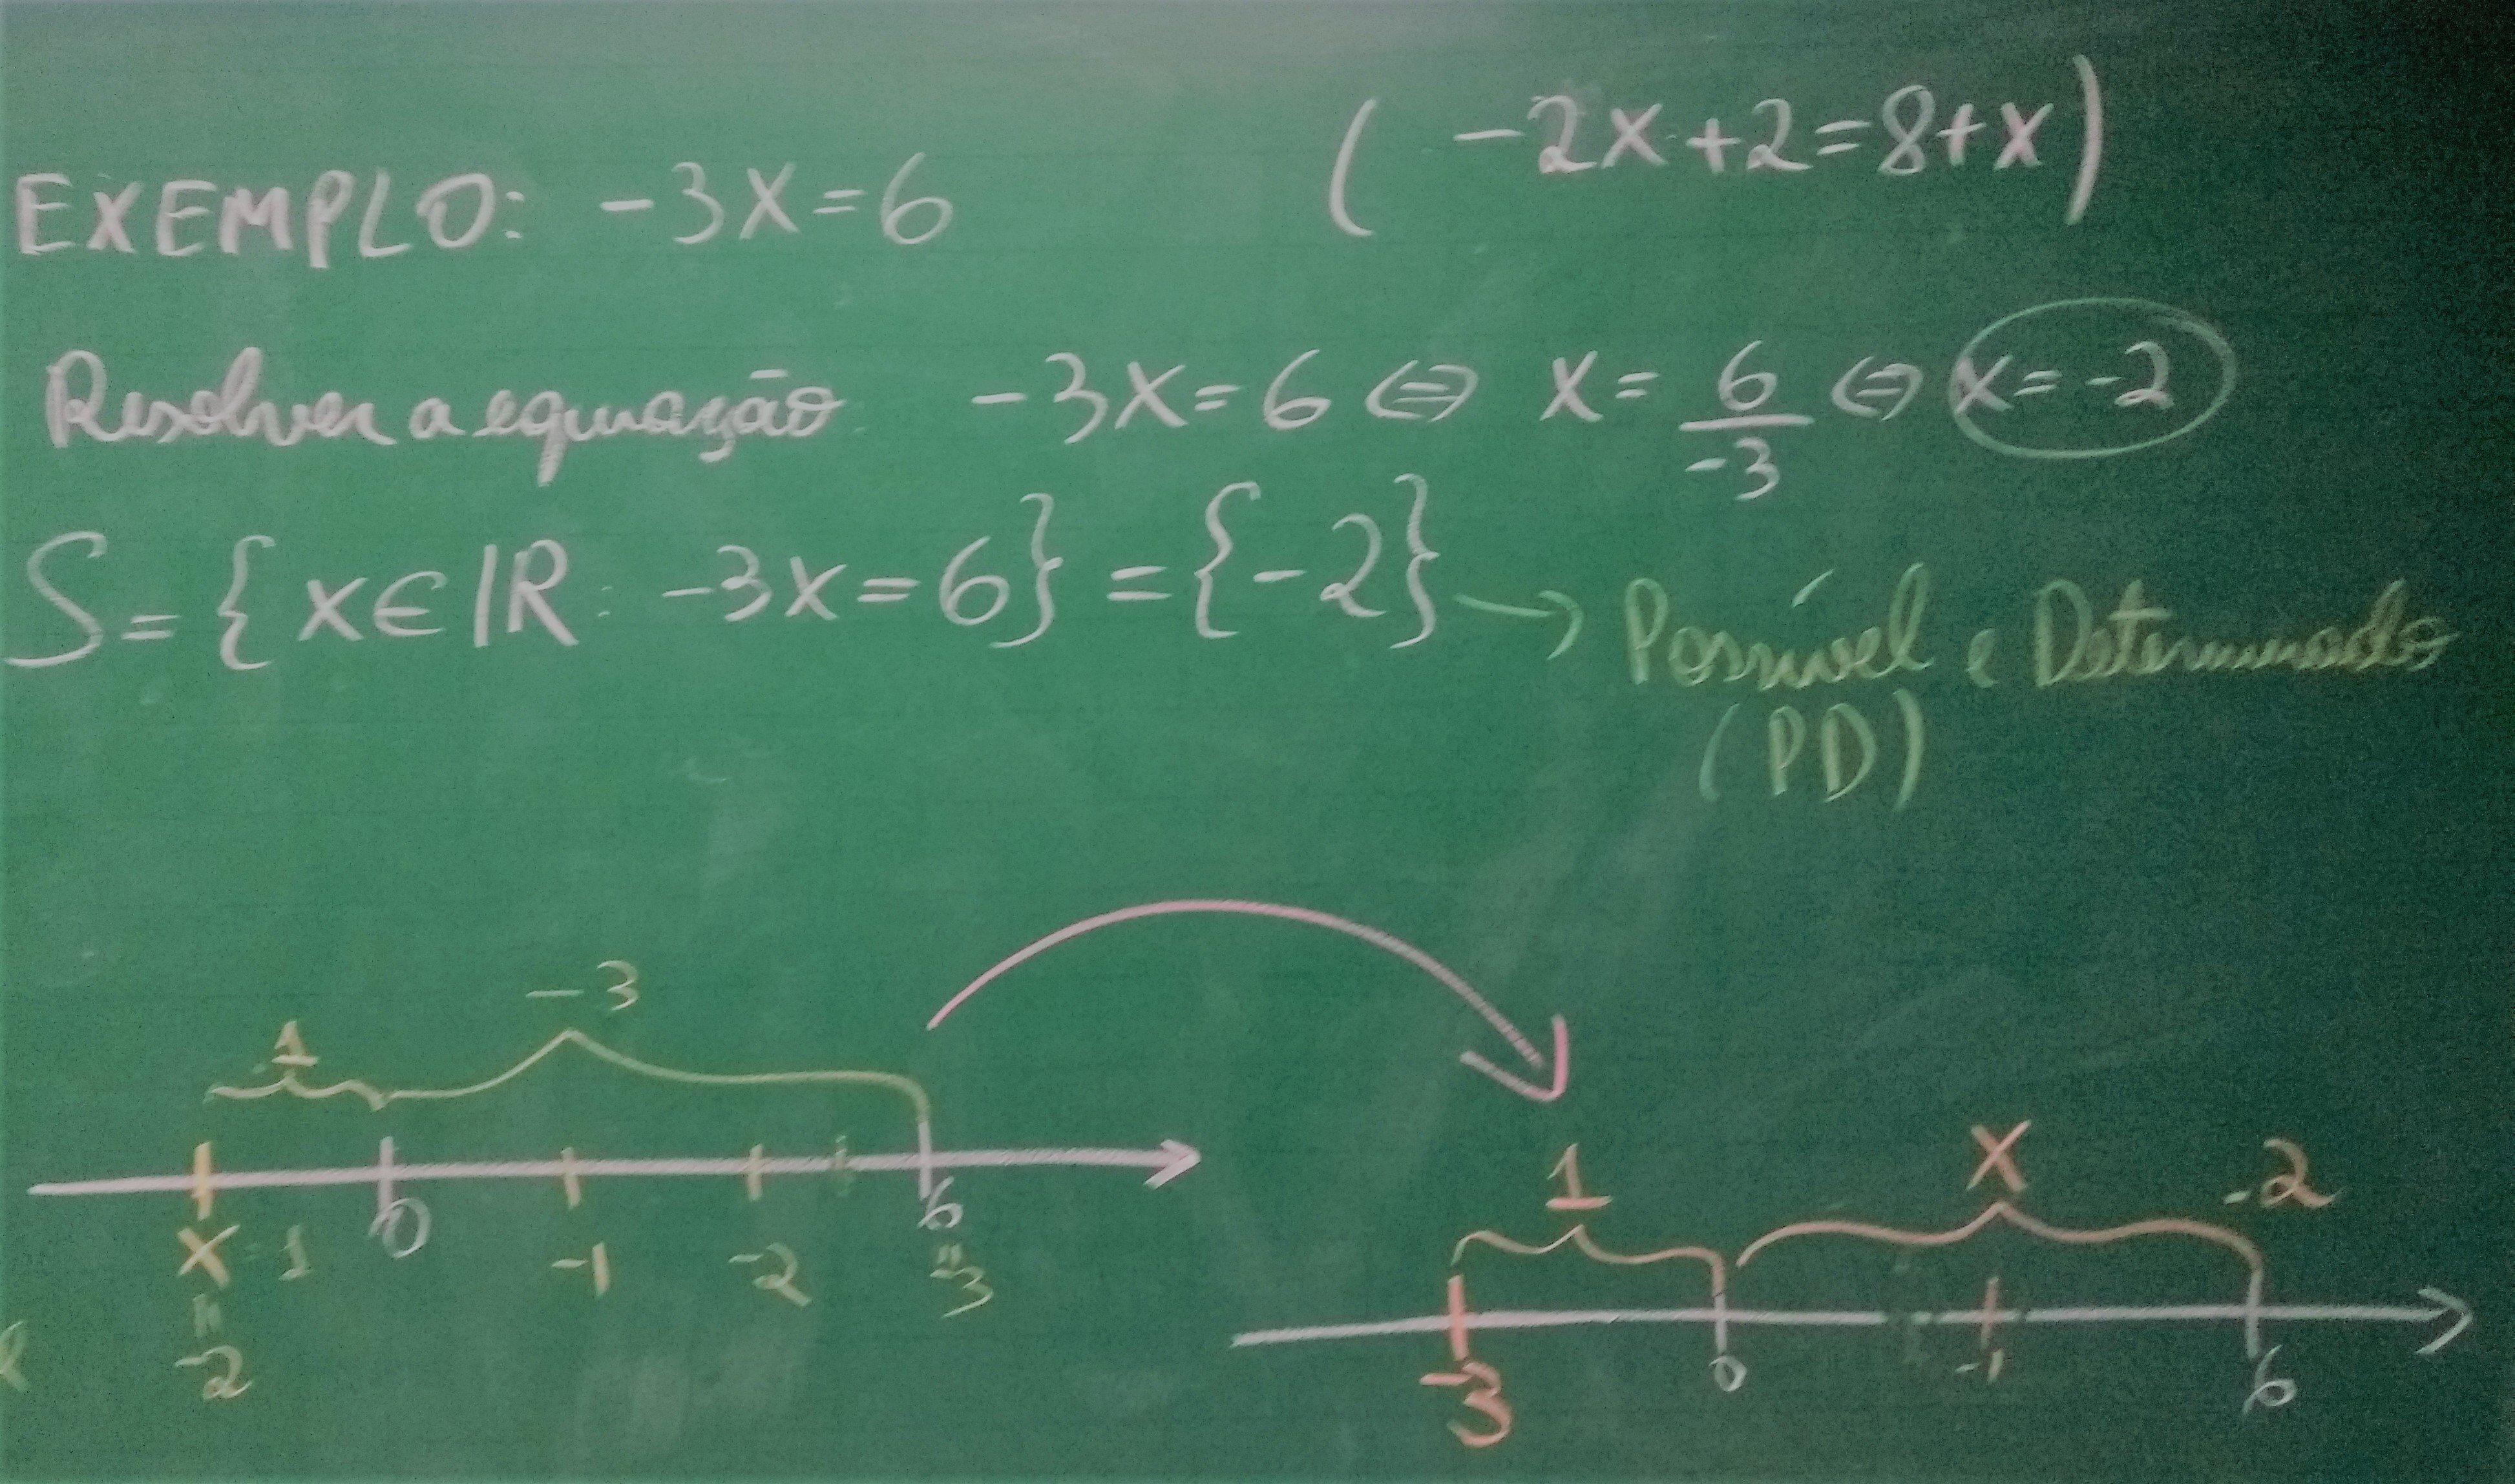 EXEMPLO: -3X=6 ( -2X+2=8+X)
Resolver a equação -3X=6 ⇔ X= 6/-3 ⇔ X= -2
S= { X∈IR: -3X=6} = {-2} → Possível e Determinado
(PD)
-3
1
0 6
X 1 -1 -2 =
= -3
-2
1 X -2
-3 0 -1 6